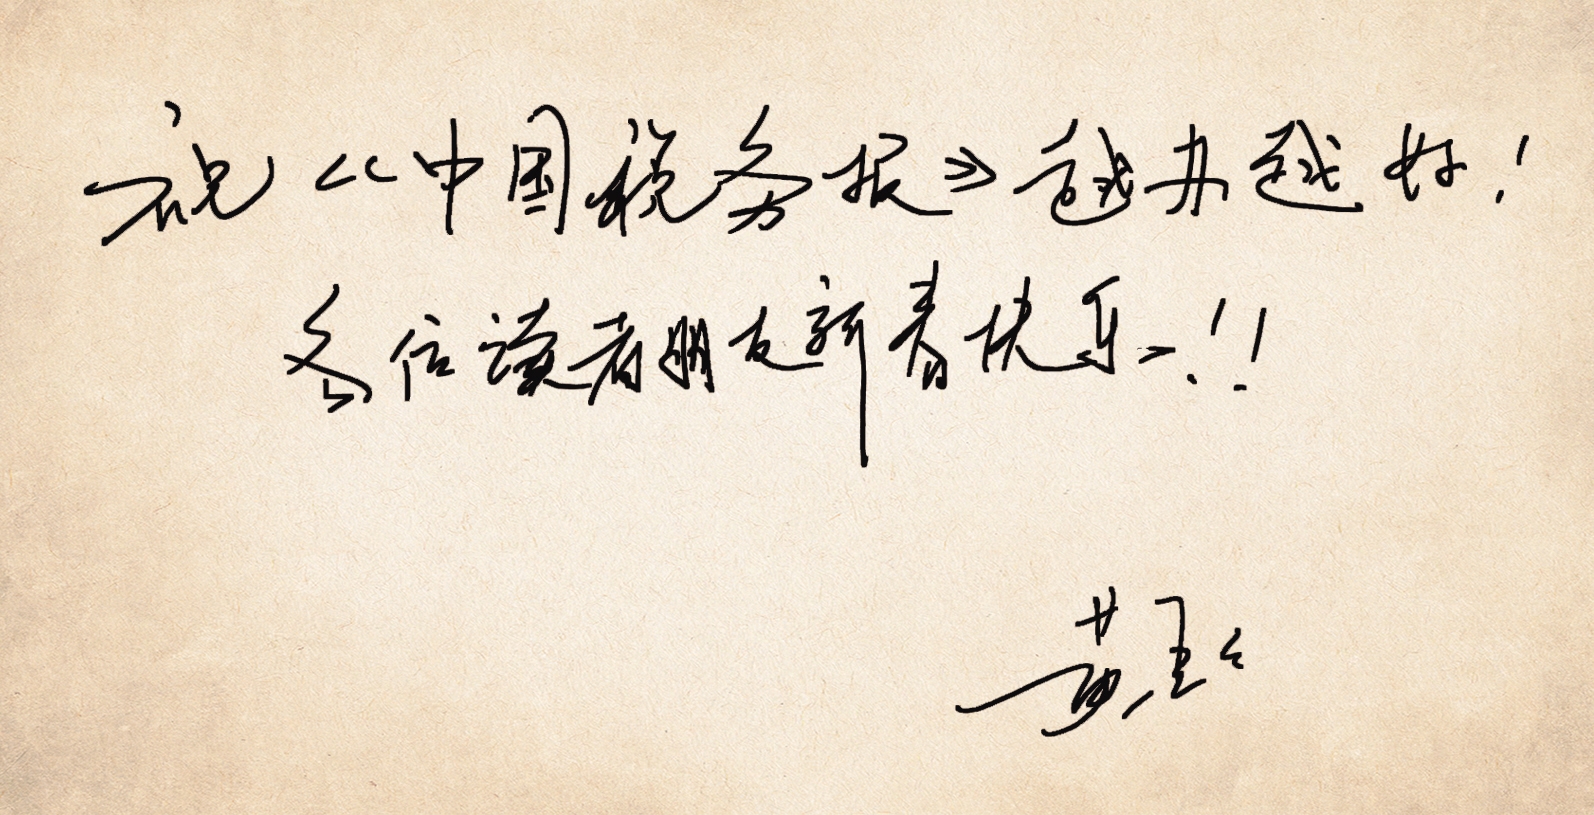 祝《中国税务报》越办越好!
各位读者朋友新春快乐!!